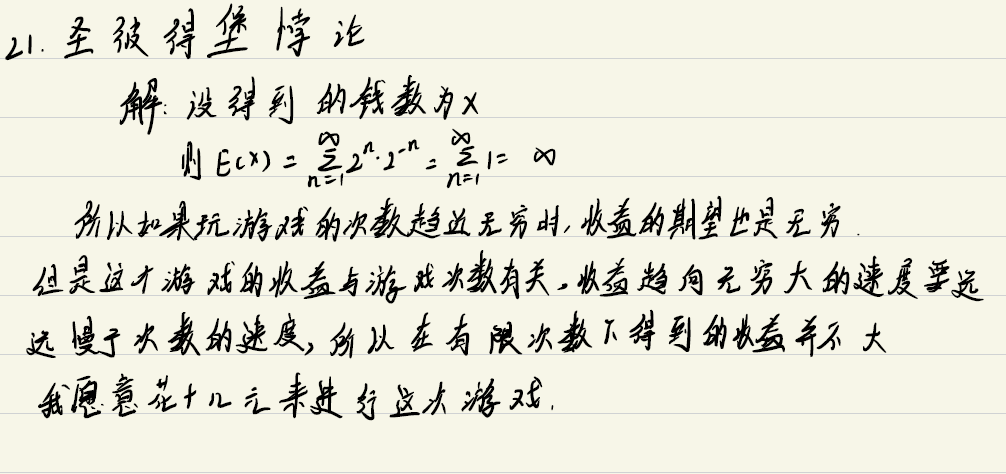 21. 圣彼得堡悖论
解: 设得到的钱数为X
则 E(X) = ∑_{n=1}^{∞} 2^n·2^{-n} = ∑_{n=1}^{∞} 1 = ∞
所以如果玩游戏的次数趋近无穷时, 收益的期望也是无穷.
但是这个游戏的收益与游戏次数有关。收益趋向无穷大的速度要远
远慢于次数的速度, 所以在有限次数下得到的收益并不大
我愿意花十几元来进行这次游戏.